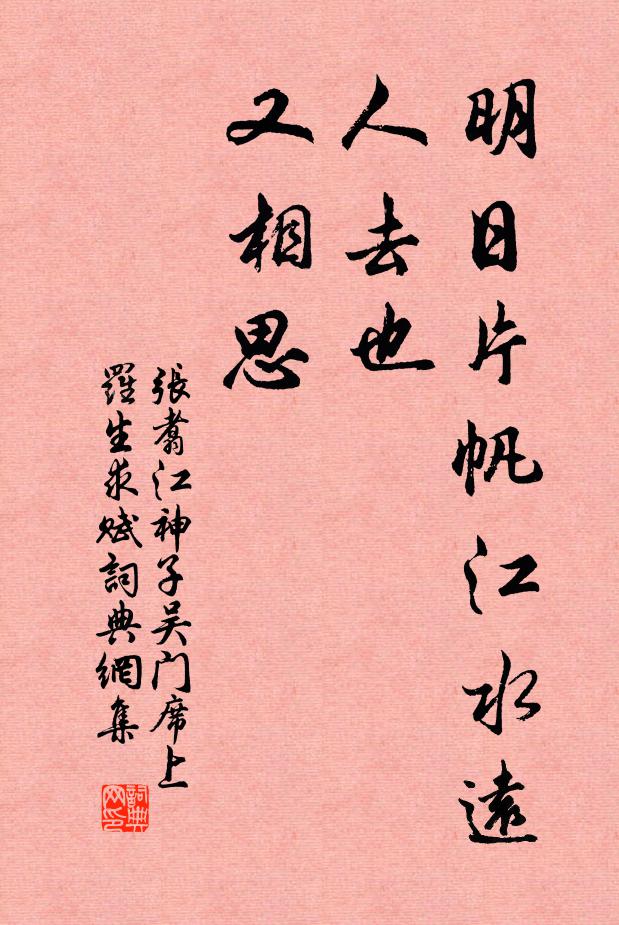 明日片帆江水遠
人去也
又相思
張翥江神子吴門席上
羅生求賦詞典網集
詞典
网印